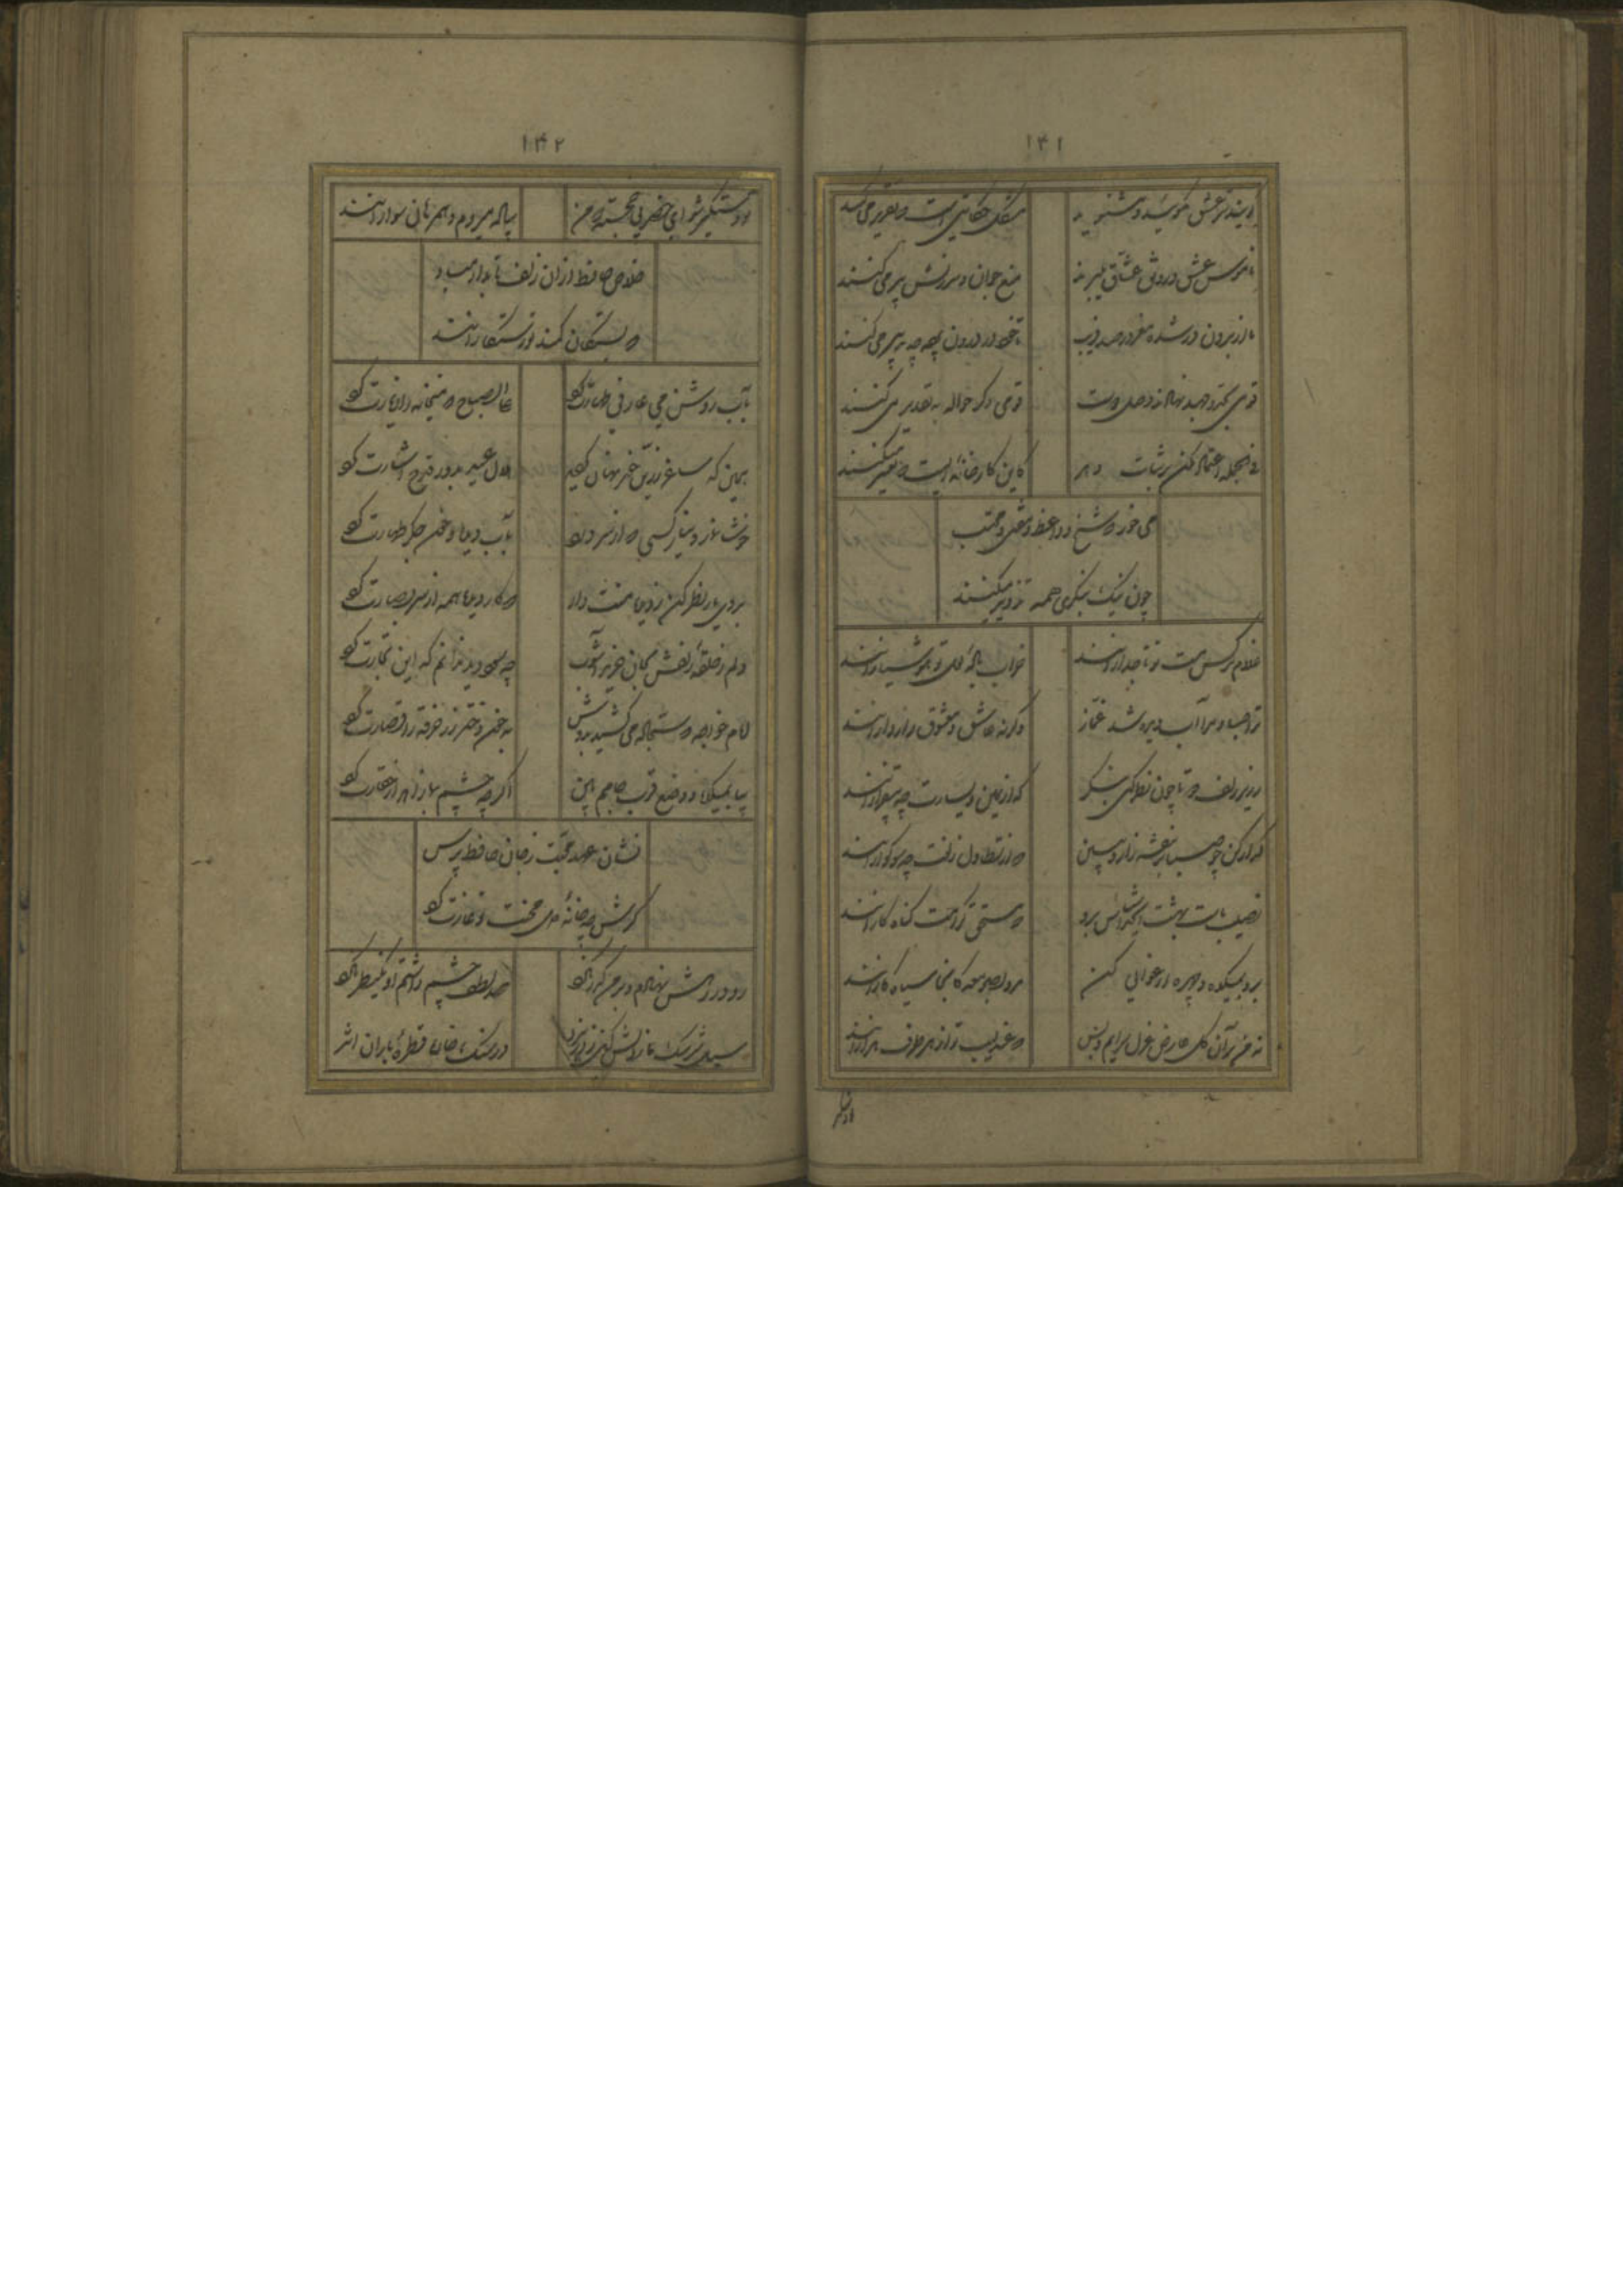 ۱۴۱
گویند رمز عشق مگوئید و مشنوید
مشکل حکایتی است که تقریر می کنند
ناموس عشق و رونق عشاق میبرند
منع جوان و سرزنش پیر می کنند
ما از برون در شده مغرور صد فریب
تا خود درون پرده چه تدبیر می کنند
قومی بجد و جهد نهادند وصل دوست
قومی دگر حواله به تقدیر می کنند
فی الجمله اعتماد مکن بر ثبات دهر
کاین کارخانه ایست که تغییر میکنند
می خور که شیخ و واعظ و مفتی و محتسب
چون نیک بنگری همه تزویر میکنند
غلام نرگس مست تو تاجدارانند
خراب باده لعل تو هوشیارانند
ترا صبا و مرا آب دیده شد غماز
وگرنه عاشق و معشوق رازدارانند
بزیر زلف دوتا چون نظر کنی بنگر
که از یمین و یسارت چه بیقرارانند
گذار کن چو صبا بر بنفشه زار و ببین
که از تطاول زلفت چه سوگوارانند
نصیب ماست بهشت ای خداشناس برو
که مستحق کرامت گناه کارانند
برو بمیکده و چهره ارغوانی کن
مرو بصومعه کانجا سیاه کارانند
نه من بر آن گل عارض غزل سرایم و بس
که عندلیب تو از هر طرف هزارانند
۱۴۲
تو دستگیر شو ای خضر پی خجسته که من
پیاده میروم و همرهان سوارانند
خلاص حافظ از آن زلف تابدار مباد
که بستگان کمند تو رستگارانند
بآب روشن می عارفی طهارت کرد
علی الصباح که میخانه را زیارت کرد
همین که ساغر زرین خور نهان گردید
هلال عید بدور قدح اشارت کرد
خوشا نماز و نیاز کسی که از سر درد
بآب دیده و خون جگر طهارت کرد
بروی یار نظر کن ز دیده منت دار
که کار دیده همه از سر بصارت کرد
دلم ز حلقه زلفش بجان خرید آشوب
چه سود دید ندانم که این تجارت کرد
امام خواجه که سجاده می کشید بدوش
به خون دختر رز خرقه را قصارت کرد
بیا بمیکده و وضع قرب جاهم بین
اگر چه چشم بما زاهد از حقارت کرد
نشان عهد محبت ز جان حافظ پرس
گرش چه خانه دل محنت تو غارت کرد
رو در رهش نهادم و بر من گذر نکرد
صد لطف چشم داشتم او یک نظر نکرد
سیل سرشک ما ز دلش کین بدر نبرد
در سنگ خاره قطره باران اثر